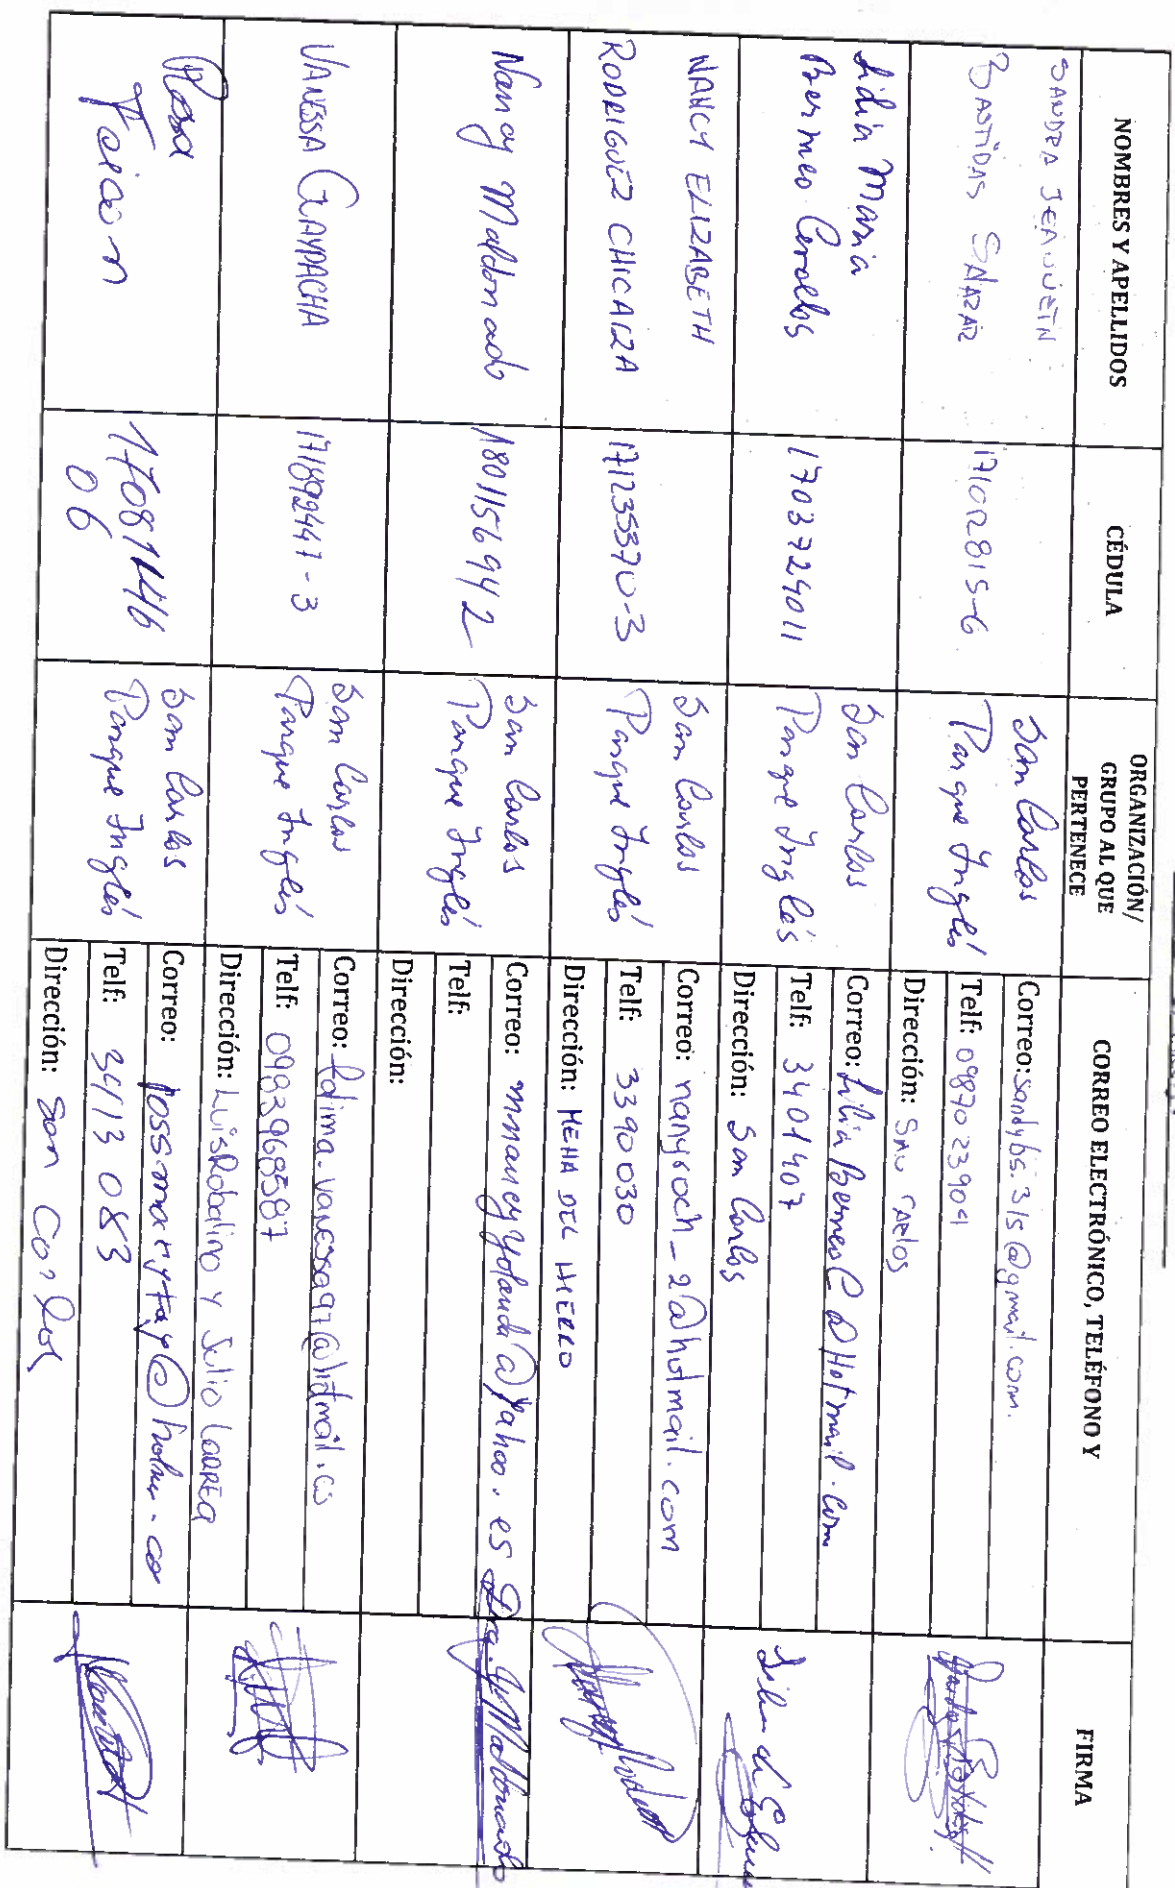 NOMBRES Y APELLIDOS
CÉDULA
ORGANIZACIÓN/
GRUPO AL QUE
PERTENECE
CORREO ELECTRÓNICO, TELÉFONO Y
FIRMA
SANDRA JEANNETN
BASTIDAS SALAZAR
171002815-6
San Carlos
Parque Inglés
Correo: sandybs.315@gmail.com.
Telf: 0987023904
Dirección: SAN CARLOS
Lidia Maria
Bermeo Cevallos
1703729011
San Carlos
Parque Inglés
Correo: LiliaBermeoC@Hotmail.com
Telf: 3401407
Dirección: San Carlos
NANCY ELIZABETH
RODRIGUEZ CHICAIZA
171235370-3
San Carlos
Parque Inglés
Correo: nanyroch_2@hotmail.com
Telf: 3390030
Dirección: MENA DEL HIERRO
Nancy Maldonado
1801156942
San Carlos
Parque Inglés
Correo: mnancyyolanda@yahoo.es
Telf:
Dirección:
Dra. Y Maldonado
VANESSA GUAYPACHA
171892447-3
San Carlos
Parque Inglés
Correo: fatima.vanessa97@hotmail.co
Telf: 0983968587
Dirección: Luis Robalino y Julio LARREA
Rosa
17081446
06
San Carlos
Parque Inglés
Correo:
Telf: 3413 083
Dirección: San Carlos